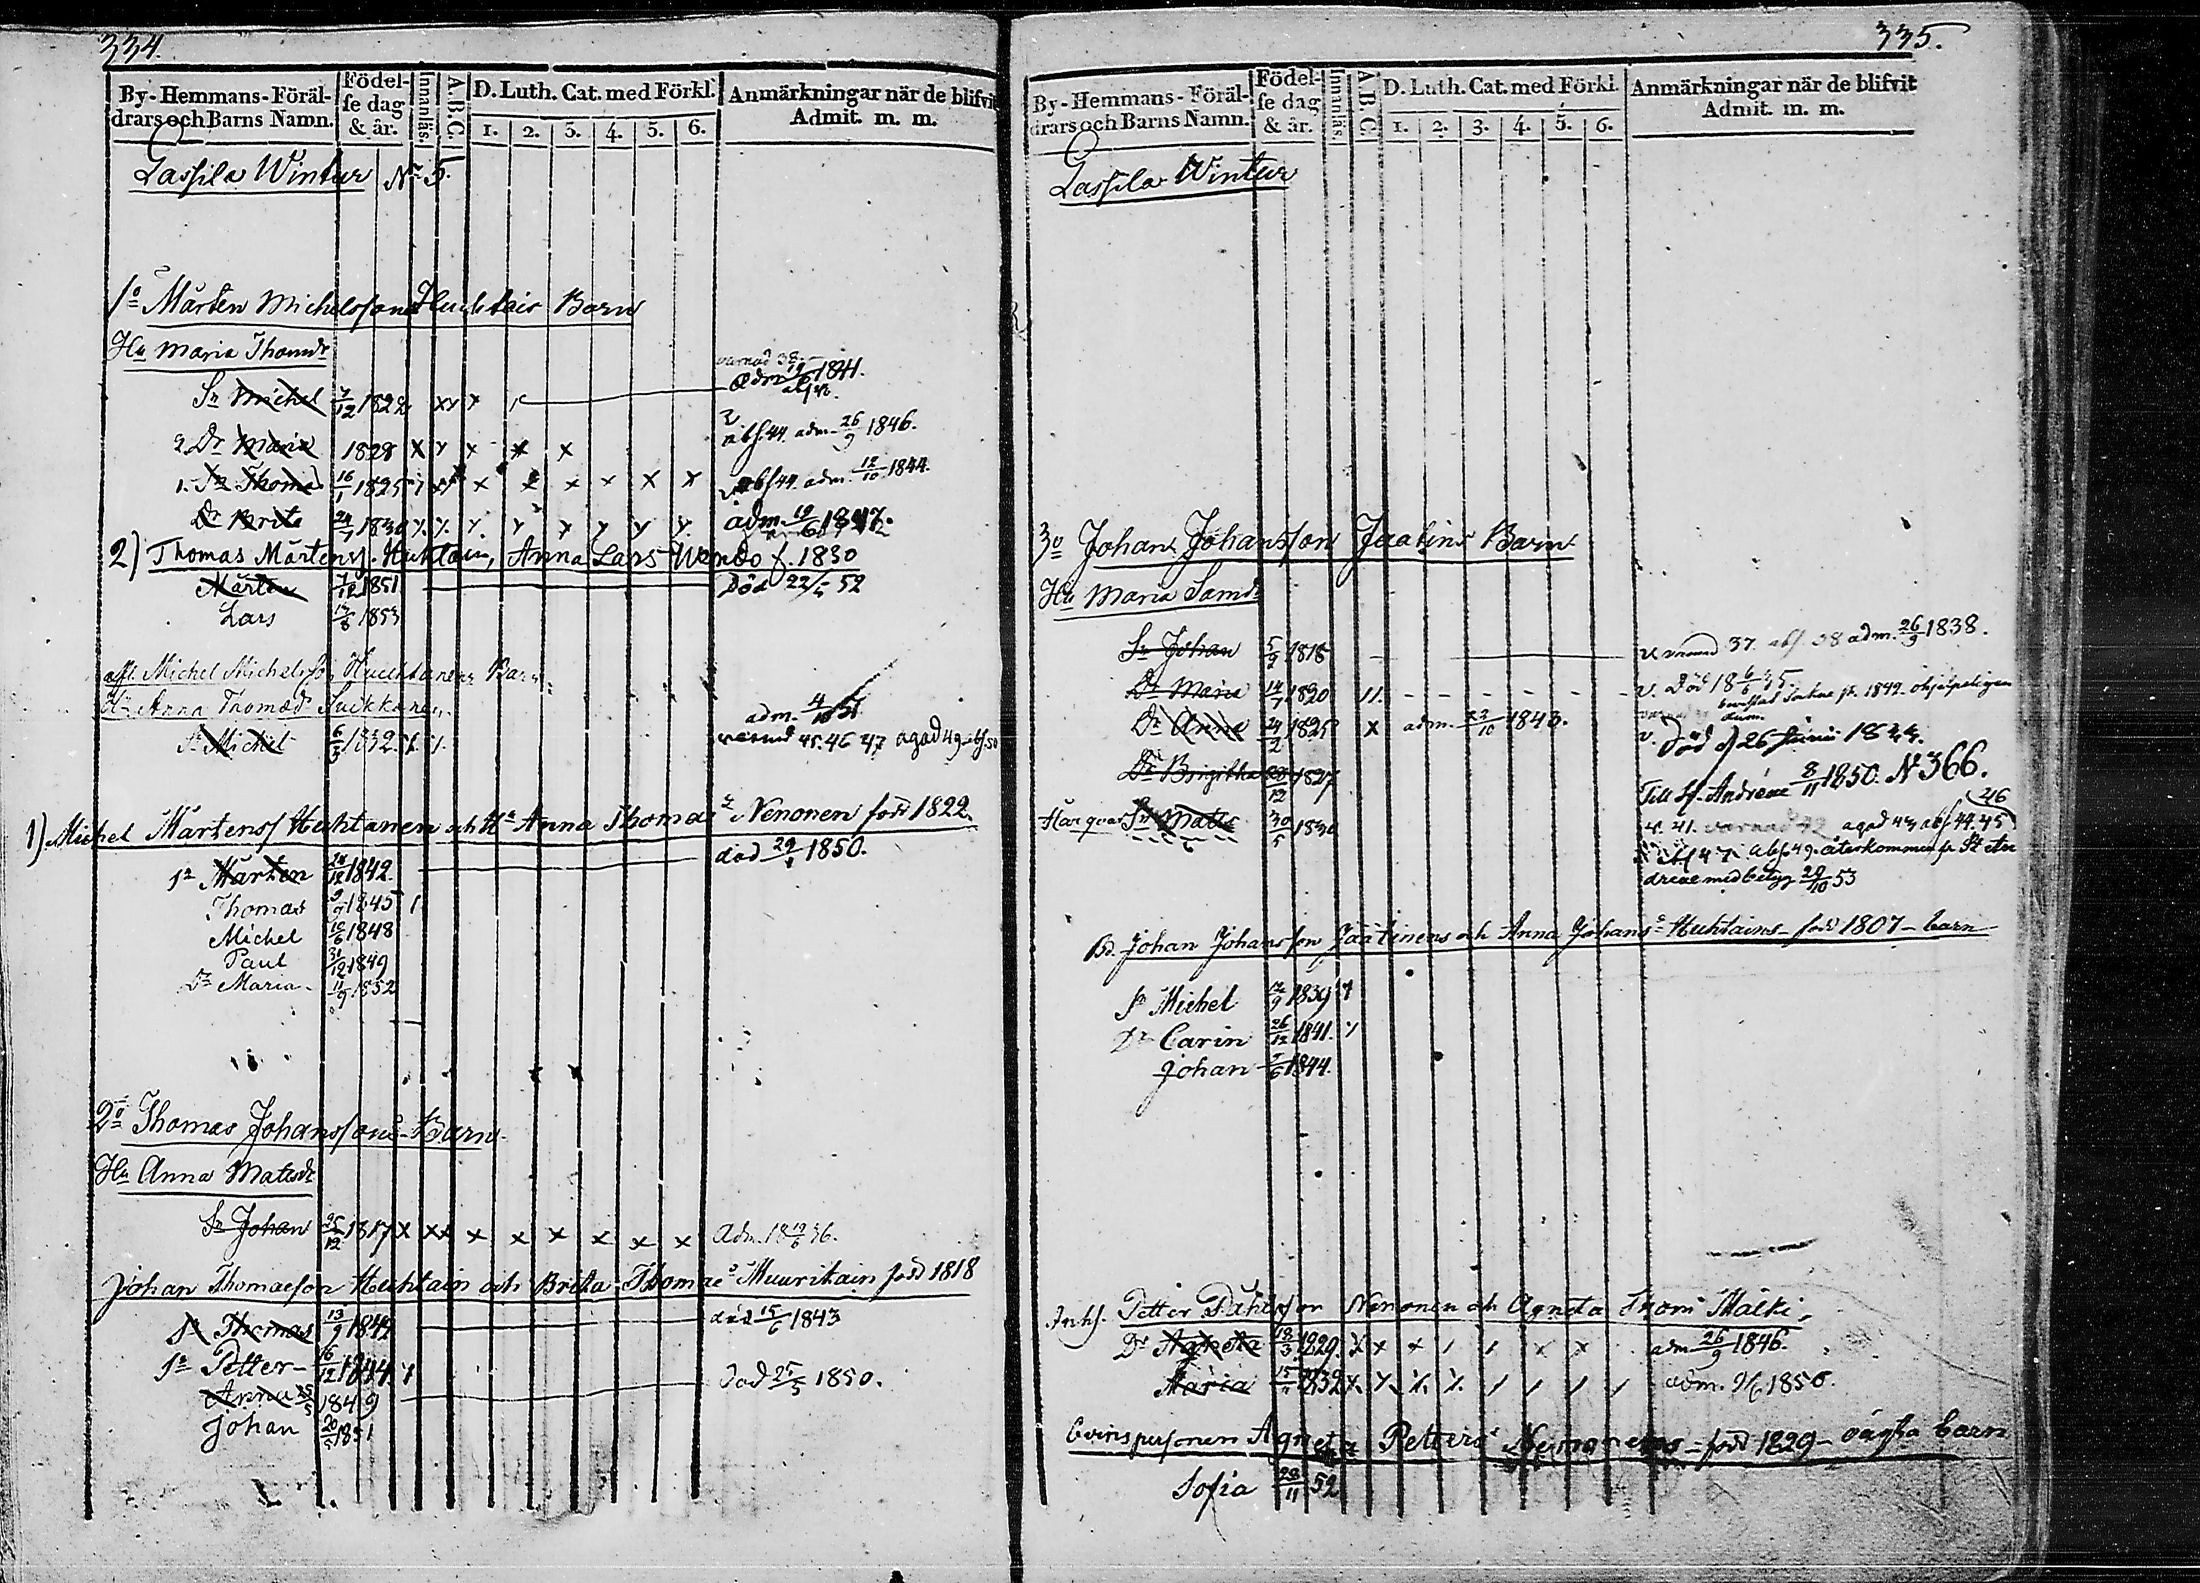 334.
By-Hemmans-Föräl-
drars och Barns Namn.
Födel-
se dag
& år.
Innanläs.
A.B.C.
D. Luth. Cat. med Förkl.
1. 2. 3. 4. 5. 6.
Anmärkningar när de blifvit
Admit. m. m.
Lassila Wintur No 5.
1o Mårten Michelssons Huchtais Barn
Hu Maria Thomdr
Sn Michel 7/12 1822 xx x adm 1841.
2 Dr Maria 1828 x x x x x abs. 44. adm. 26/9 1846.
1. Sn Thomas 16/1 1825 x x x x x x abs 44. adm. 12/10 1844.
Dr Brita 24/7 1830 adm. 19/6 1847.
2) Thomas Mårtenss. Huhtain, Anna Lars f. 1830
Mårten 7/12 1851 Död 22/5 52
Lars 1853
Michel Michelsson Huchtanens Barn
Hu Anna Thomædr Suikkanen
Sn Michel 6/3 1832. adm.
45. 46 47 agad 49 abs. 50
1) Michel Mårtenss Huhtanen och Hu Anna Thomæ dr Nenonen född 1822.
Sn Mårten 24/12 1842. död 29/1 1850.
Thomas 9/9 1845
Michel 10/6 1848
Paul 31/12 1849
Dr Maria 11/9 1852
2o Thomas Johanssons Barn
Hu Anna Matsdr
Sn Johan 25/12 1817 x xx x x x x x x Adm. 18 19/6 36.
Johan Thomasson Huhtain och Brita Thomæ dr Muurikain född 1818
Sn Thomas 13/9 1842 död 15/6 1843
Sn Petter 16/12 1844
Anna 25/5 1849 död 25/5 1850.
Johan 20/5 1851
335.
By-Hemmans-Föräl-
drars och Barns Namn.
Födel-
se dag
& år.
Innanläs.
A.B.C.
D. Luth. Cat. med Förkl.
1. 2. 3. 4. 5. 6.
Anmärkningar när de blifvit
Admit. m. m.
Lassila Wintur
3o Johan Johansson Jaatins Barn
Hu Maria Samdr
Sn Johan 5/9 1818 37. abs. 38 adm. 26/9 1838.
Dr Maria 14/7 1820 v. Död 18 6/6 35.
Dr Anna 24/2 1825 x adm. 1843. 1842.
v. Död d 26 Junii 1833.
Dr Brigitha 28/12 1827
Till St. Andreae 8/11 1850. N 366.
Har qvar Sn Matts 30/5 1830 v. 41. varnad 42 agad 43 abs. 44. 45 46
abs 47. abs. 49. återkommen fr St An
dreae med betyg 29/10 53
Bd. Johan Johansson Jäätinens och Anna Johans dr Huhtains född 1807 barn
Sn Michel 12/9 1839
Dr Carin 26/12 1841.
Johan 1844.
Inhs. Petter Påhlsson Nenonen och Agneta Thom Mälki
Dr Agneta 18/3 1829. x x x adm 26/9 1846.
Maria 1832 adm. 1850.
Qvinspersonen Agneta Petters dr Nenonens född 1829 oägta barn
Sofia 28/11 52